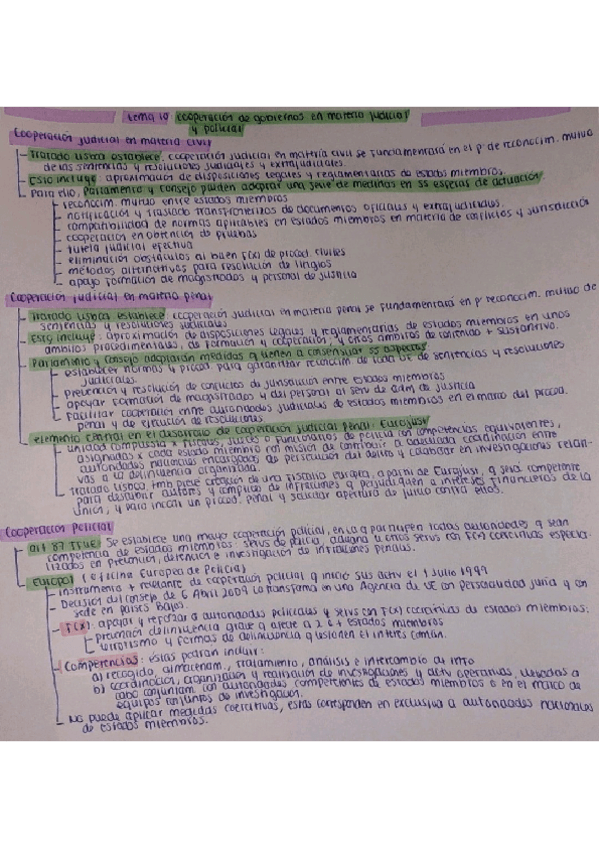 Tema 10 cooperación de gobiernos en materia judicial
y policial
Cooperación judicial en materia civil
Tratado Lisboa establece: cooperación judicial en materia civil se fundamentará en el pº de reconocim. mutuo
de las sentencias y resoluciones judiciales y extrajudiciales.
Esto incluye: aproximación de disposiciones legales y reglamentarias de estados miembros.
Para ello, Parlamento y Consejo pueden adoptar una serie de medidas en ss esferas de actuación:
reconocim. mutuo entre estados miembros
notificación y traslado transfronterizos de documentos oficiales y extrajudiciales.
compatibilidad de normas aplicables en estados miembros en materia de conflictos y jurisdicción
cooperación en obtención de pruebas
tutela judicial efectiva
eliminación obstáculos al buen F(x) de proced. civiles
métodos alternativos para resolución de litigios
apoyo formación de magistrados y personal de justicia
Cooperación judicial en materia penal
Tratado Lisboa establece: cooperación judicial en materia penal se fundamentará en pº reconocim. mutuo de
sentencias y resoluciones judiciales
Esto incluye: aproximación de disposiciones legales y reglamentarias de estados miembros en unos
ámbitos procedimentales, de formación y cooperación, y otros ámbitos de contenido + sustantivo.
Parlamento y Consejo adoptarán medidas q tienen a consensuar ss aspectos
establecer normas y proced. para garantizar reconocim de toda UE de sentencias y resoluciones
judiciales.
Prevención y resolución de conflictos de jurisdicción entre estados miembros
apoyar formación de magistrados y del personal al serv de adm. de justicia
Facilitar cooperación entre autoridades judiciales de estados miembros en el marco del proced.
penal y de ejecución de resoluciones
elemento central en el desarrollo de cooperación judicial penal: Eurojust
unidad compuesta x fiscales, jueces o funcionarios de policía con competencias equivalentes,
asignadas x cada estado miembro con misión de contribuir a adecuada coordinación entre
autoridades nacionales encargadas de persecución del delito y colaborar en investigaciones relati-
vas a la delincuencia organizada.
Tratado Lisboa, tmb prevé creación de una Fiscalía europea, a partir de Eurojust, q será competente
para descubrir autores y cómplices de infracciones q perjudiquen a intereses financieros de la
Unión, y para incoar un proced. penal y solicitar apertura de juicio contra ellos.
Cooperación Policial
Art 87 TFUE: Se establece una mayor cooperación policial, en la q participen todas autoridades q sean
competencia de estados miembros: servs de policía, aduana u otros servs con F(x) coercitivas especia-
lizados en prevención, detención e investigación de infracciones penales.
Europol (oficina Europea de Policía)
instrumento + relevante de cooperación policial q inició sus activ el 1 Julio 1999
Decisión del consejo de 6 Abril 2009 la transforma en una Agencia de UE con personalidad jurid y con
sede en países Bajos.
F(x): apoyar y reforzar a autoridades policiales y servs con F(x) coercitivas de estados miembros;
prevención delincuencia grave q afecte a 2 o + estados miembros
terrorismo y formas de delincuencia q lesionen el interés común.
Competencias: éstas podrán incluir:
a) recogida, almacenam., tratamiento, análisis e intercambio de info
b) coordinación, organización y realización de investigaciones y actv operativas, llevadas a
cabo conjuntam con autoridades competentes de estados miembros o en el marco de
equipos conjuntos de investigación.
No puede aplicar medidas coercitivas, estas corresponden en exclusiva a autoridades nacionales
de estados miembros.